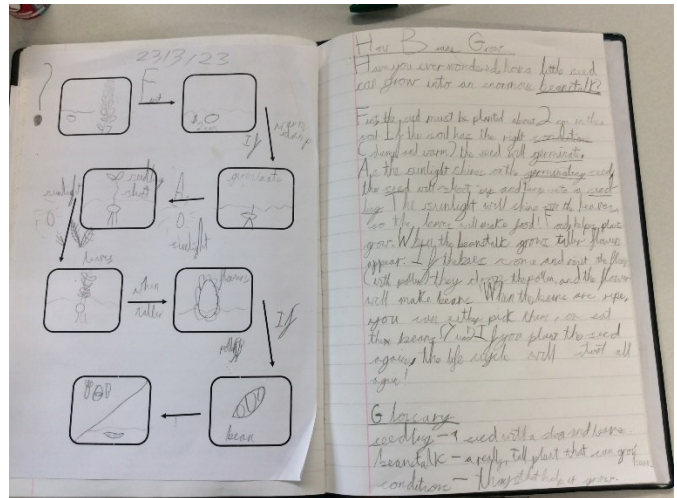 23/3/23
?
First
2cm
If
warm
damp
germinate
As
sunlight
seedling
shoot
sunlight
So
leaves
when
taller
flowers
If
pollen
bean
How Beans Grow
Have you ever wondered how a little seed
can grow into an enormous beanstalk?
First the seed must be planted about 2 cm in the
soil. If the soil has the right conditions
(damp and warm) the seed will germinate.
As the sunlight shines on the germinating seed
the seed will shoot up and into a seed-
ling. The sunlight will shine on the leaves
so the leaves will make food! Food helps plants
grow. When the beanstalk grows taller flowers
appear. If the bees come and the flower
(with pollen) they the pollen, and the flower
will make beans. When the beans are ripe,
you can either pick them, or eat
them beans (Yum)! If you plant the seed
again, the life cycle will start all
agen!
Glossary
seedling - A seed with a stem and leaves.
beanstalk - a really, tall plant that can grow
conditions - Things that help it grow.